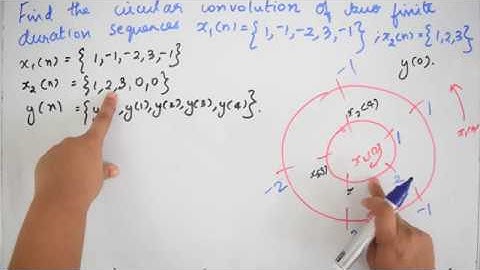 Find the circular convolution of two finite
duration sequences x₁(n)={1,-1,-2,3,-1} ; x₂(n)={1,2,3}
x₁(n) = {1,-1,-2,3,-1}
x₂(n) = {1,2,3,0,0}
y(n) = {y ,y(1),y(2),y(3),y(4)}.
y(0).
-1
x₂(4)
1
1
x₂(3)
2
-2
-1